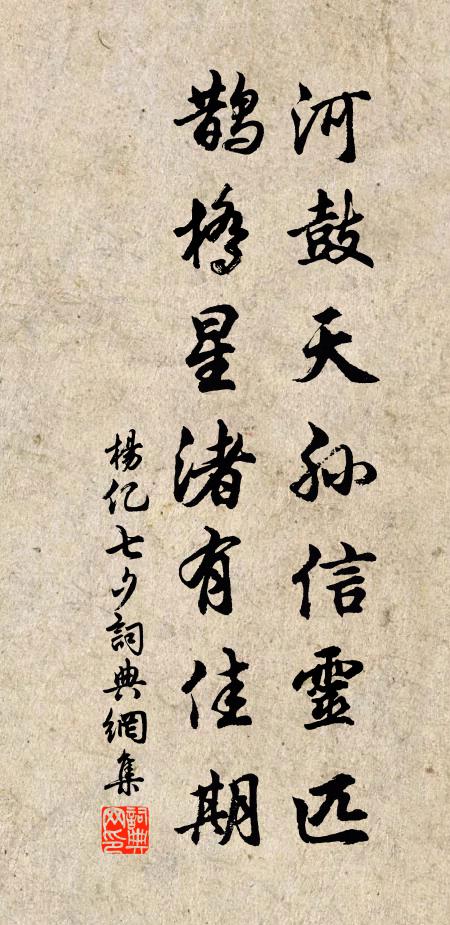 河鼓天孫信靈匹
鵲橋星渚有佳期
楊億七夕詞典網集
詞典網印